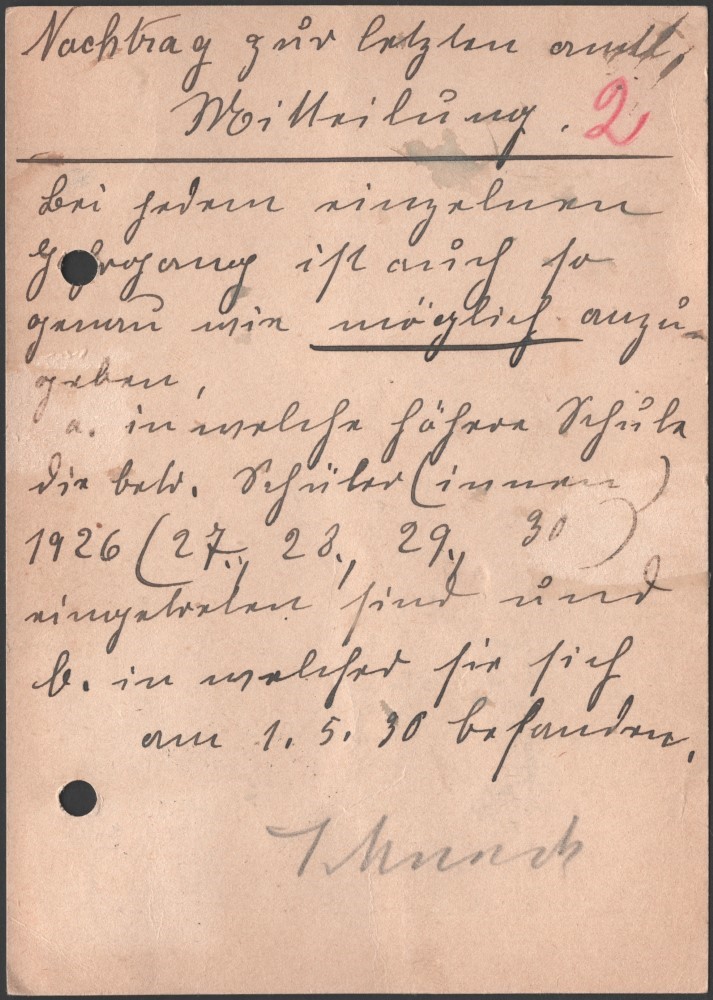 Nachtrag zur letzten amtl.
Mitteilung. 2
Bei jedem einzelnen
Jahrgang ist auch so
genau wie möglich anzu-
geben,
a. in welche höhere Schule
die betr. Schüler (innen)
1926 (27., 28., 29., 30)
eingetreten sind und
b. in welcher sie sich
am 1. 5. 30 befanden.